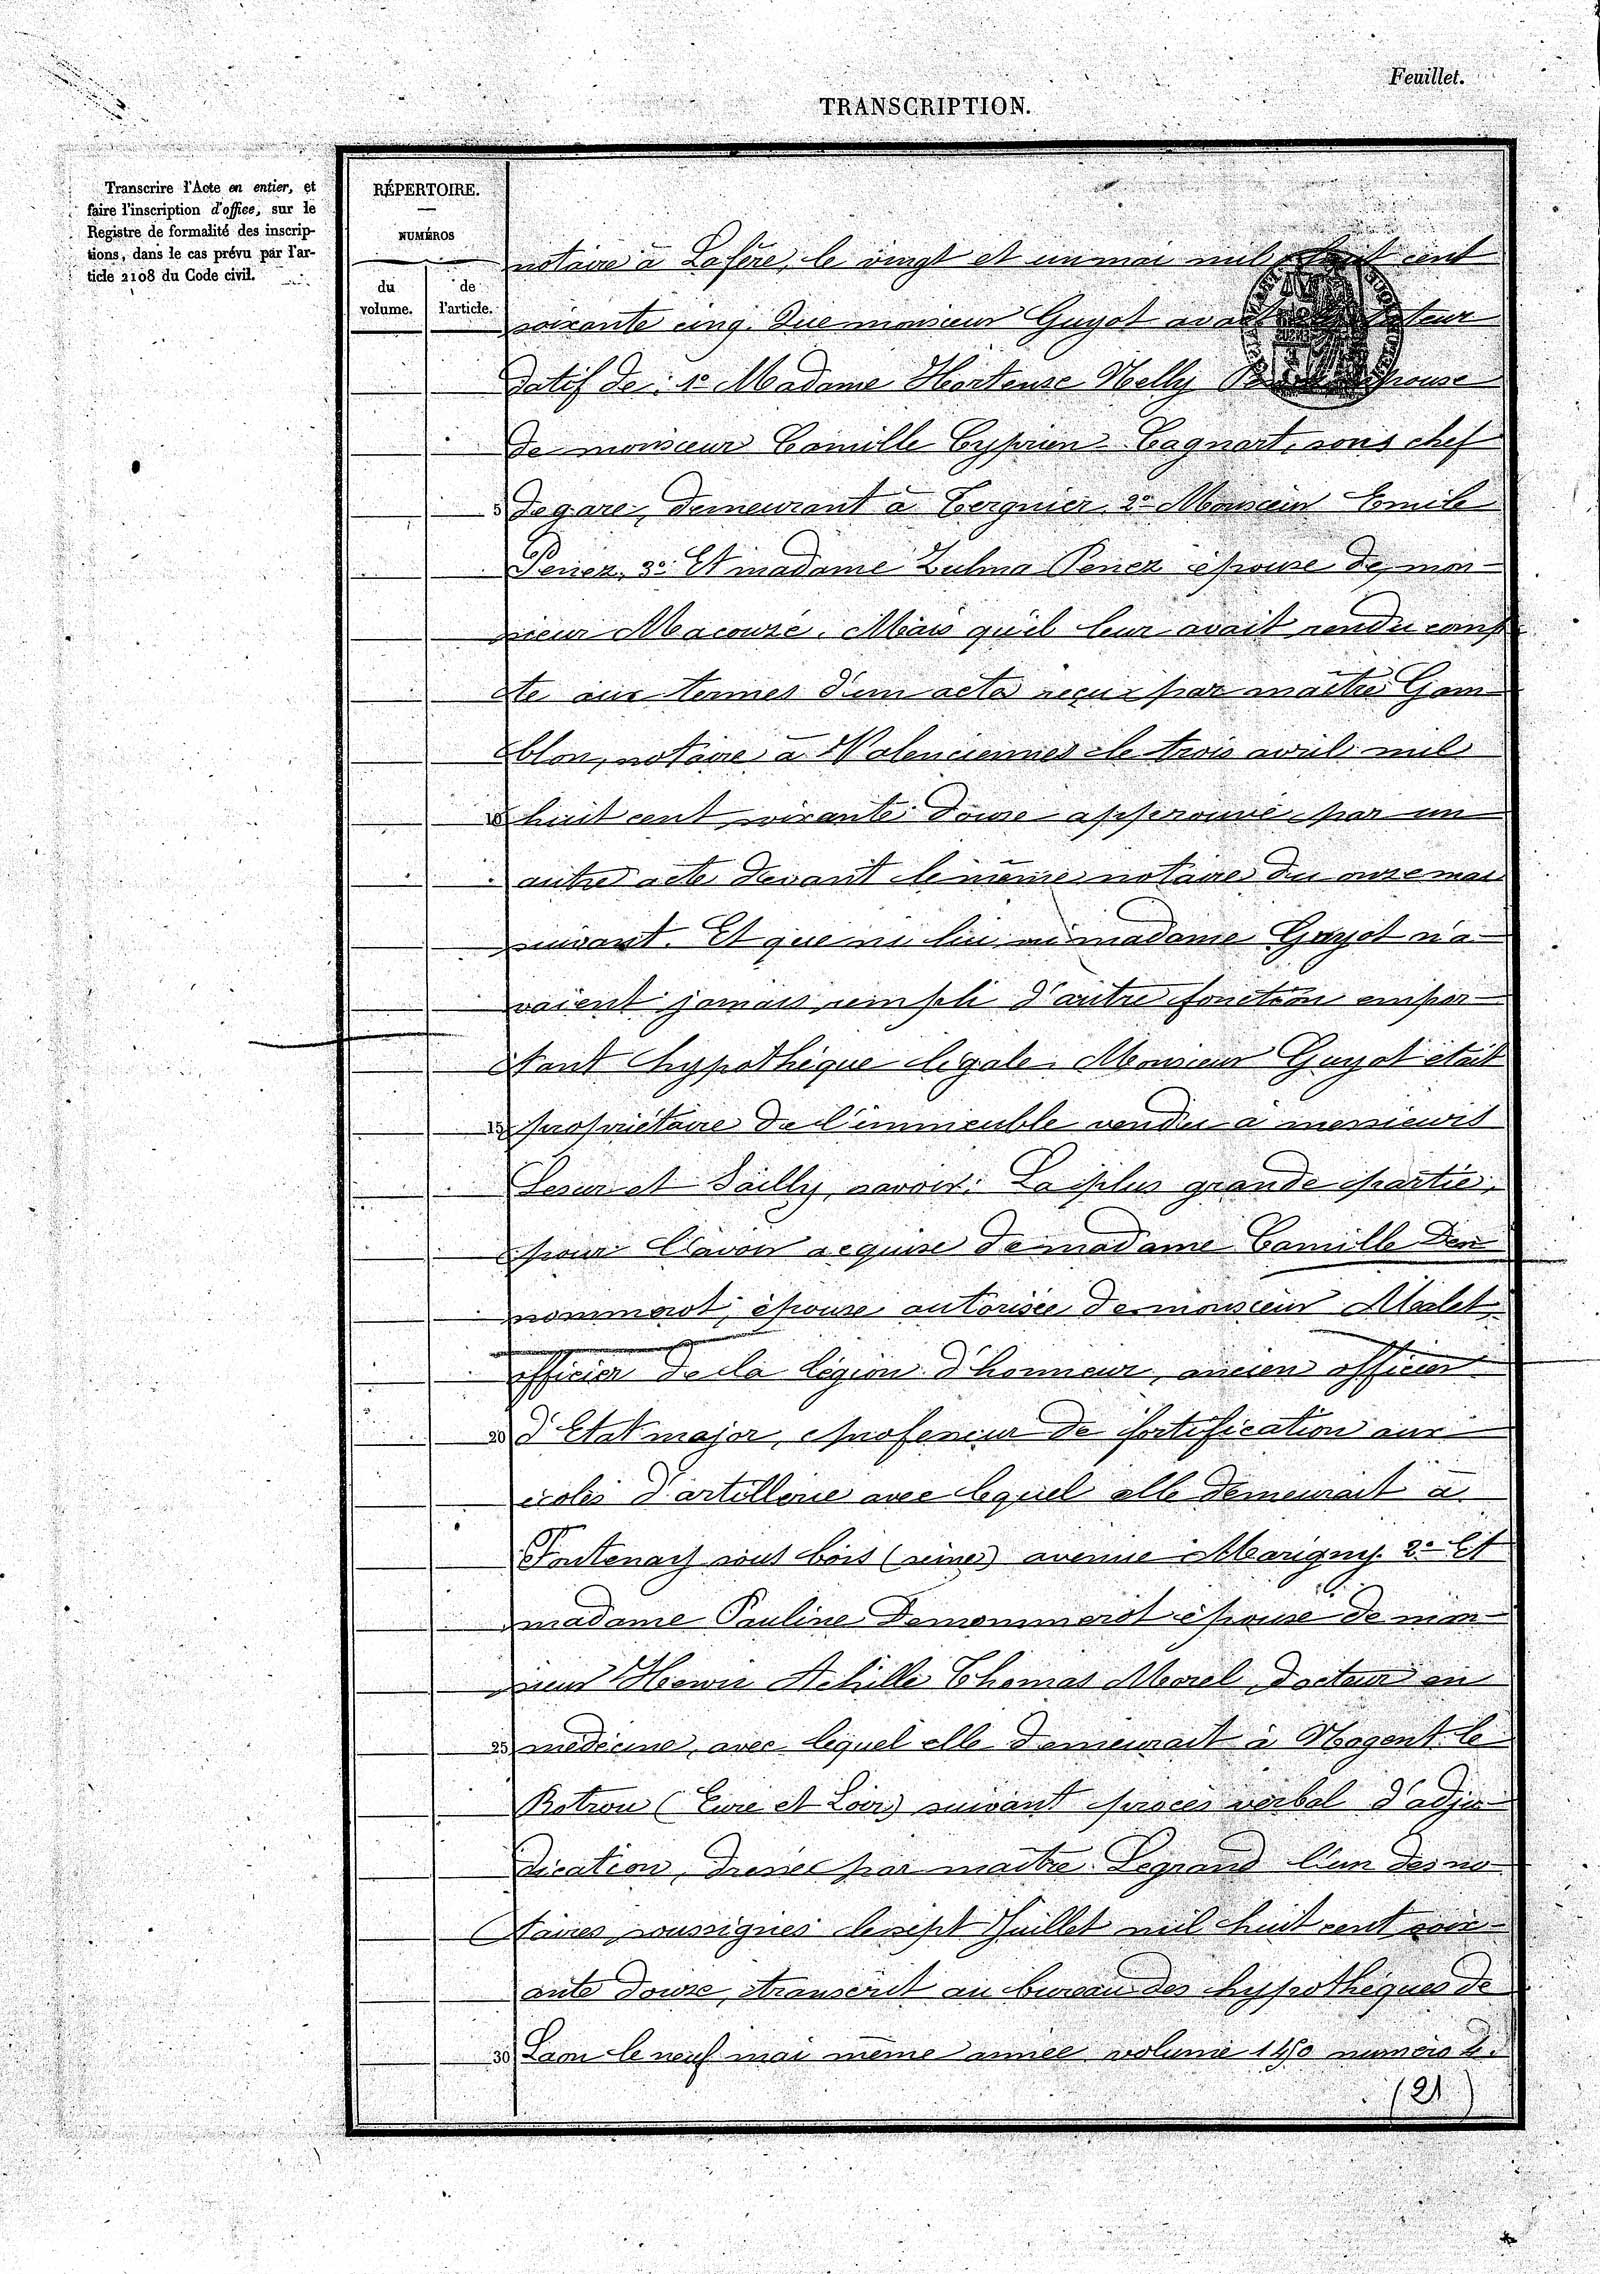 Feuillet.
TRANSCRIPTION.
Transcrire l'Acte en entier, et
faire l'inscription d'office, sur le
Registre de formalité des inscrip-
tions, dans le cas prévu par l'ar-
ticle 2108 du Code civil.
RÉPERTOIRE.
NUMÉROS
du
volume.
de
l'article.
notaire à Lafère, le vingt et un mai mil huit cent
soixante cinq. Que monsieur Guyot avait tuteur
datif de : 1º Madame Hortense Nelly épouse
de monsieur Camille Cyprien Cagnart, sous chef
5 de gare, demeurant à Tergnier. 2º Monsieur Emile
Penez, 3º Et madame Zulma Penez épouse de mon-
sieur Macouré. Mais qu'il leur avait rendu comp
te aux termes d'un acte reçu par maître Gam
blon, notaire à Valenciennes le trois avril mil
10 huit cent soixante douze approuvé par un
autre acte devant le même notaire du onze mai
suivant. Et que ni lui ni madame Guyot n'a-
vaient jamais rempli d'autre fonction empor-
tant hypothèque légale. Monsieur Guyot était
15 propriétaire de l'immeuble vendu à messieurs
Lesur et Sailly, savoir: La plus grande partie,
pour l'avoir acquise de madame Camille Den
nommerot, épouse autorisée de monsieur Malet
officier de la légion d'honneur, ancien officier
20 d'Etat major, professeur de fortification aux
écoles d'artillerie avec lequel elle demeurait à
Fontenay sous bois (seine) avenue Marigny. 2º Et
madame Pauline Demommerot épouse de mon-
sieur Henri Achille Thomas Morel, docteur en
25 médecine, avec lequel elle demeurait à Nogent le
Rotrou (Eure et Loir) suivant procès verbal d'adju-
dication, dressé par maître Legrand l'un des no
taires soussignés le sept Juillet mil huit cent soix-
ante douze, transcrit au bureau des hypothèques de
30 Laon le neuf mai même année volume numéro 2.
(21)